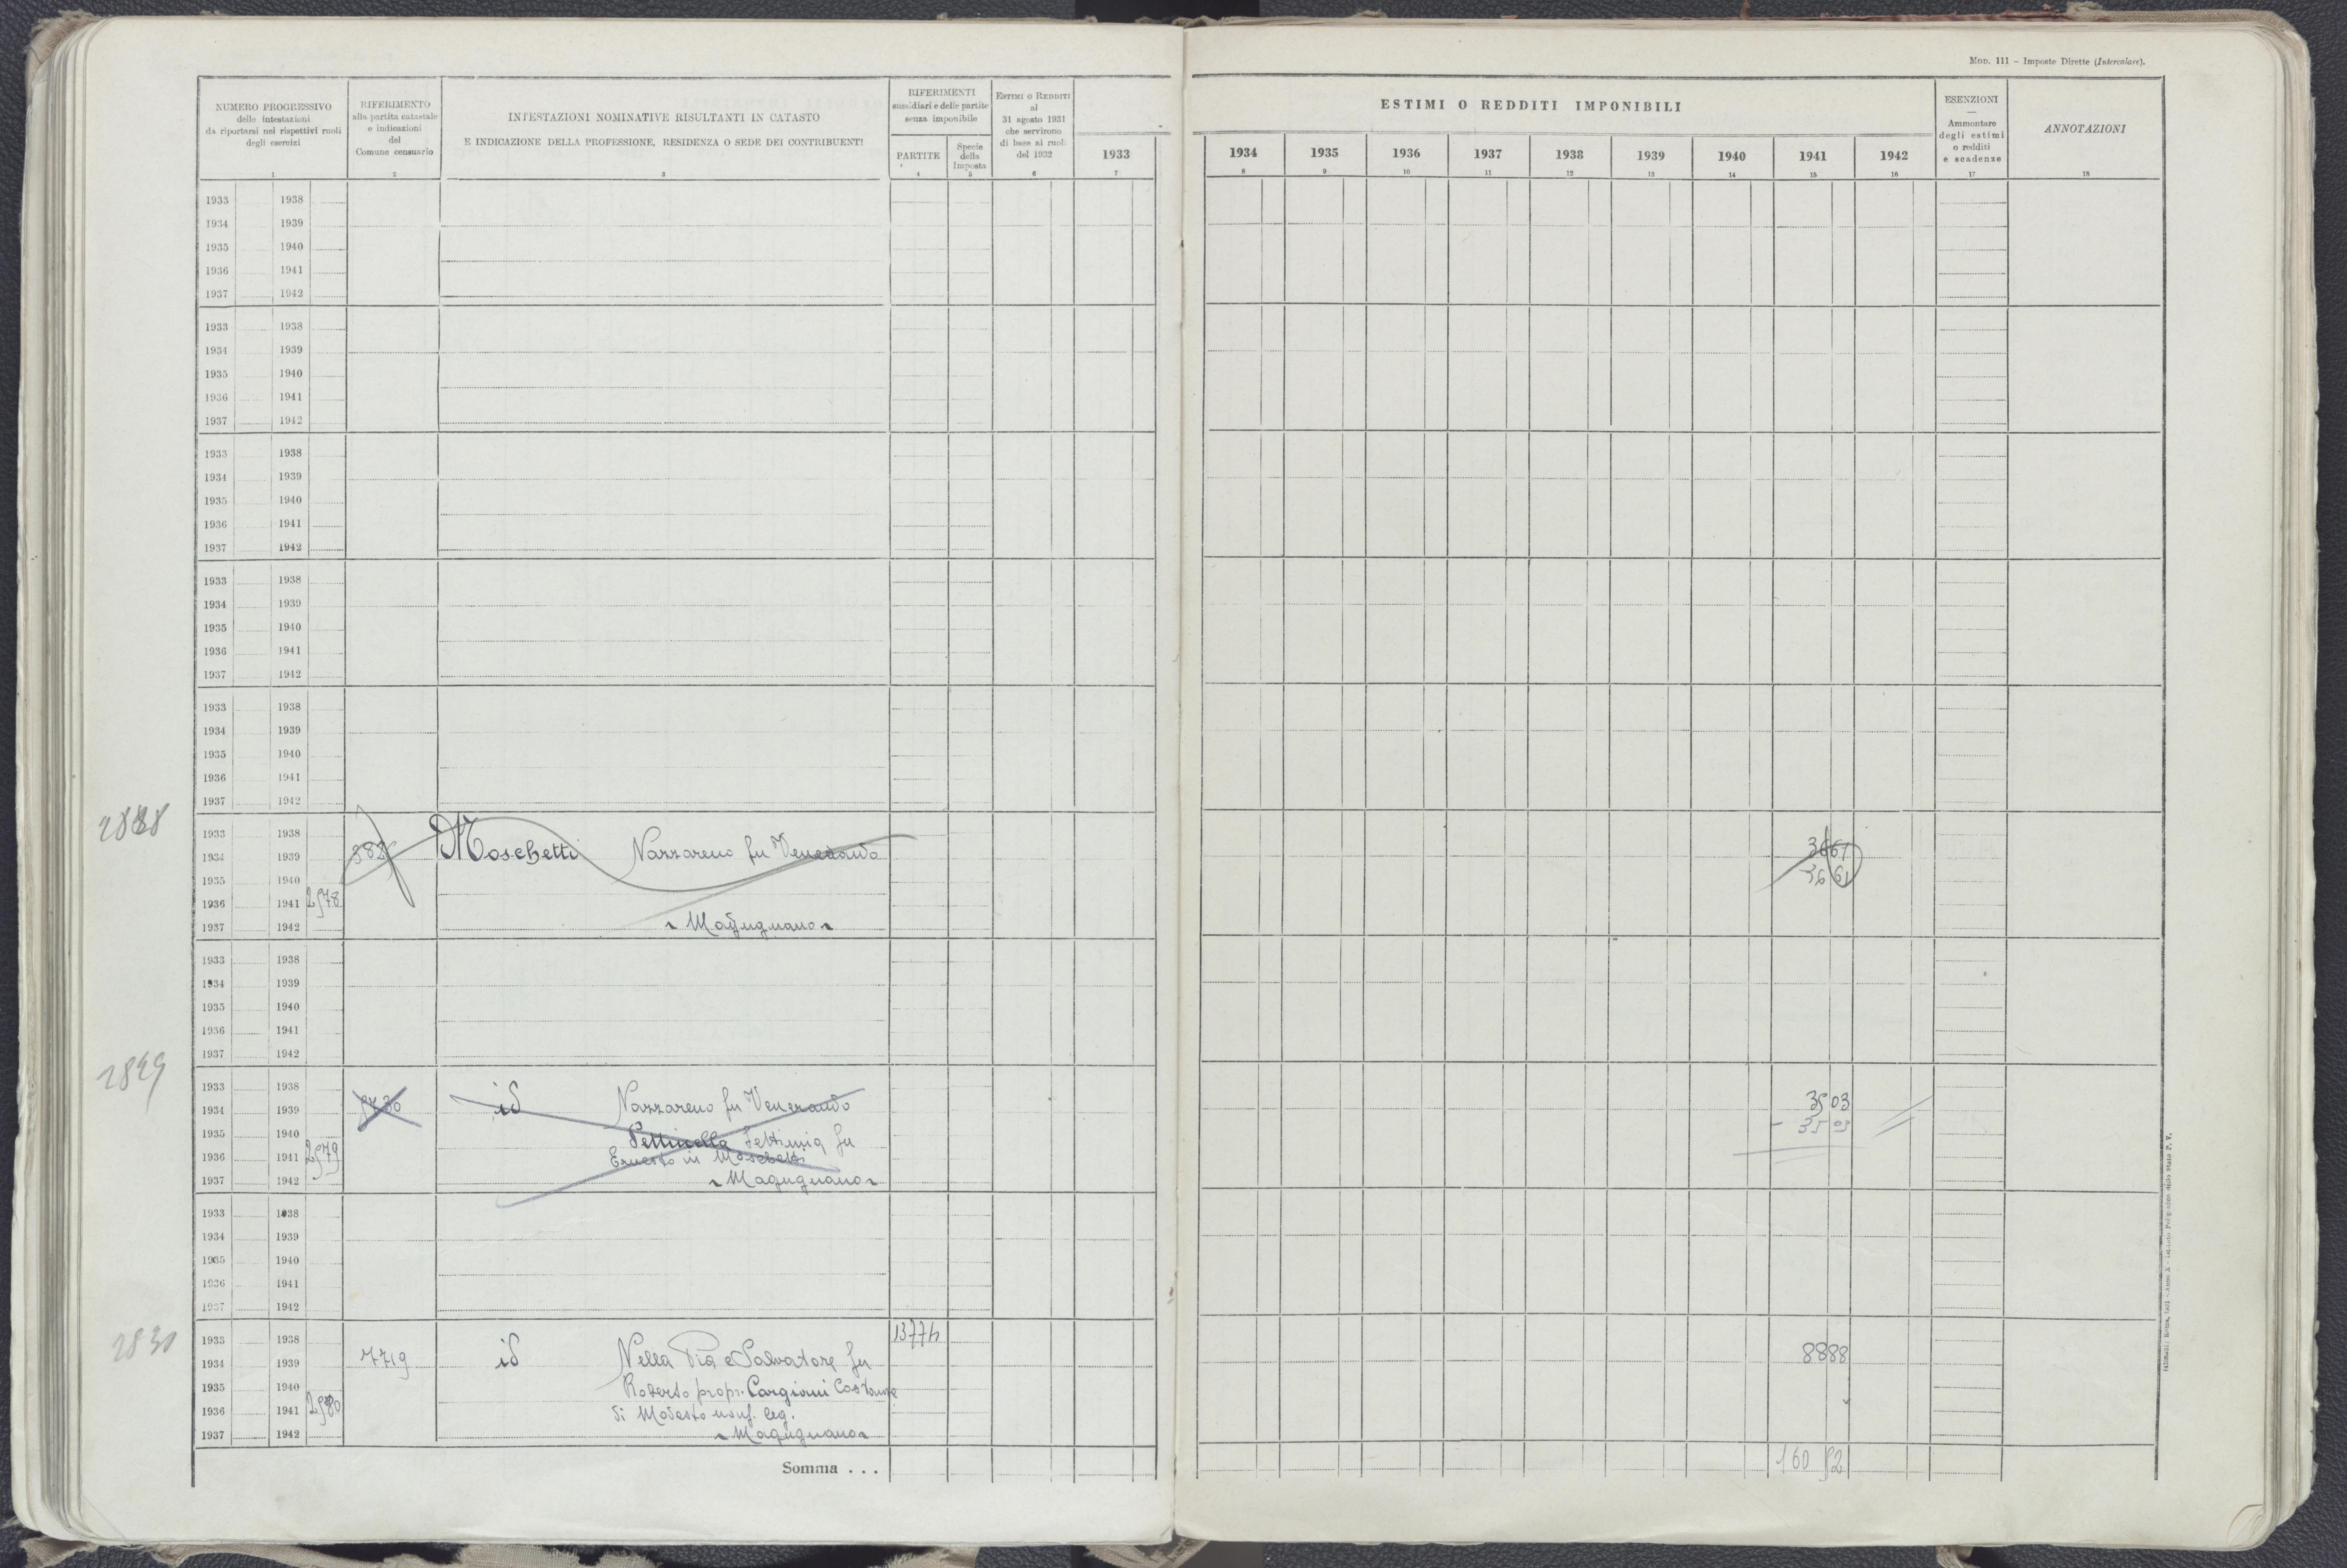 MOD. 111 - Imposte Dirette (Intercalare).
NUMERO PROGRESSIVO
delle intestazioni
da riportarsi nei rispettivi ruoli
degli esercizi
1
RIFERIMENTO
alla partita catastale
e indicazioni
del
Comune censuario
2
INTESTAZIONI NOMINATIVE RISULTANTI IN CATASTO
E INDICAZIONE DELLA PROFESSIONE, RESIDENZA O SEDE DEI CONTRIBUENTI
3
RIFERIMENTI
sussidiari e delle partite
senza imponibile
PARTITE
4
Specie
della
Imposta
5
ESTIMI O REDDITI
al
31 agosto 1931
che servirono
di base ai ruoli
del 1932
6
1933
7
ESTIMI O REDDITI IMPONIBILI
1934 1935 1936 1937 1938 1939 1940 1941 1942
8 9 10 11 12 13 14 15 16
ESENZIONI
Ammontare
degli estimi
o redditi
e scadenze
17
ANNOTAZIONI
18
1933 1938
1934 1939
1935 1940
1936 1941
1937 1942
1933 1938
1934 1939
1935 1940
1936 1941
1937 1942
1933 1938
1934 1939
1935 1940
1936 1941
1937 1942
1933 1938
1934 1939
1935 1940
1936 1941
1937 1942
1933 1938
1934 1939
1935 1940
1936 1941
1937 1942
1933 1938
1934 1939 Moschetti Nazzareno fu Venerando 3661
1935 1940 3661
1936 1941 2578
1937 1942 Magugnano
1933 1938
1934 1939
1935 1940
1936 1941
1937 1942
2829
1933 1938
1934 1939 id Nazzareno fu Venerando 3503
1935 1940 Pettinella Settimia fu - 3503
1936 1941 2579 Ernesto in Moschetti
1937 1942 Magugnano
1933 1938
1934 1939
1935 1940
1936 1941
1937 1942
2830
1933 1938 13774
1934 1939 7719 id Nella Pia e Salvatore fu 8888
1935 1940 Roberto propr. Cargioni Costanza
1936 1941 2580 di Modesto usuf. leg.
1937 1942 Magugnano
Somma . . . 160 52